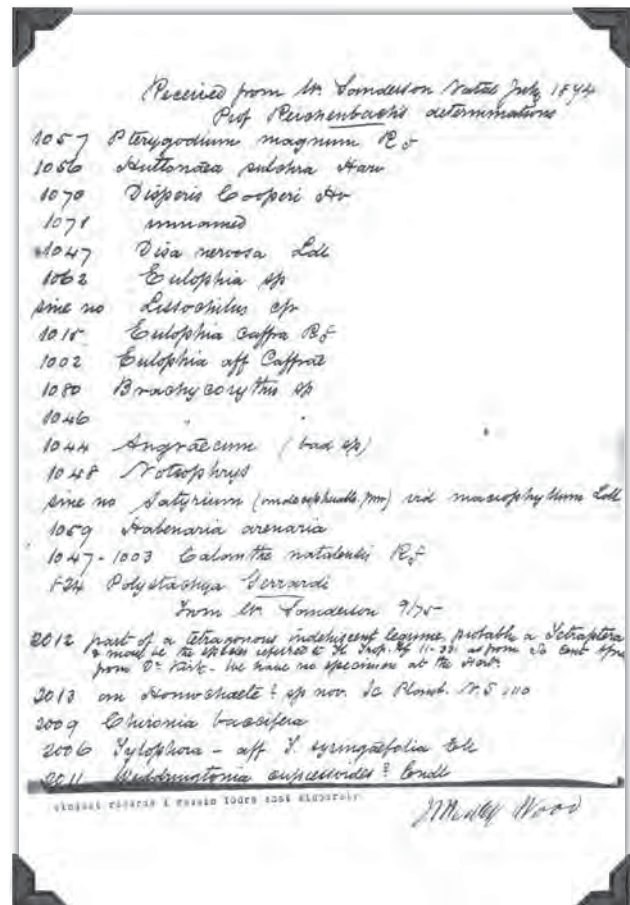 Received from Mr. Sanderson Natal July 1874
Prof Reichenbach's determinations
1057 Pterygodium magnum Rf
1056 Huttonaea pulchra Harv
1070 Disperis Cooperi Hv
1078 unnamed
1047 Disa nervosa Ldl
1062 Eulophia sp
sine no Lissochilus sp
1015 Eulophia caffra Rf
1002 Eulophia aff Caffrae
1080 Brachycorythis sp
1046
1044 Angraecum (bad sp)
1048 Notiophrys
sine no Satyrium vid macrophyllum Ldl
1059 Habenaria arenaria
1047-1003 Calanthe natalensis Rf
824 Polystachya Gerrardi
From Mr. Sanderson 9/75
2012 part of a tetragonous indehiscent legume, probable a Tetraptera
& may be the species referred to Fl Trop. Af 11-33. as from So Cent Afra
from Dr Kirk. We have no specimen at the Herb.
2013 an Homochaete? sp nov.
2009 Chironia baccifera
2006 Tylophora - aff T. syringaefolia
2011 Widdringtonia cupressoides? Endl
J Medley Wood